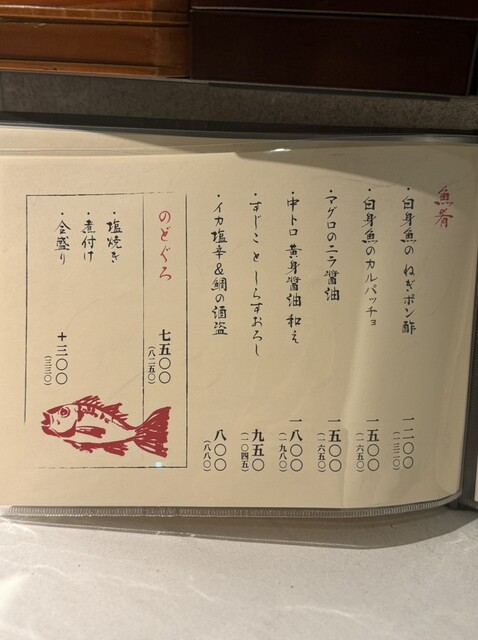 魚肴
・白身魚の ねぎポン酢 一二〇〇 (一三二〇)
・白身魚のカルパッチョ 一五〇〇 (一六五〇)
・マグロのニラ醤油 一五〇〇 (一六五〇)
・中トロ 黄身醤油 和え 一八〇〇 (一九八〇)
・すじこ と しらすおろし 九五〇 (一〇四五)
・イカ塩辛&鯛の酒盗 八〇〇 (八八〇)
のどぐろ 七五〇〇 (八二五〇)
・塩焼き
・煮付け
+三〇〇 (三三〇)